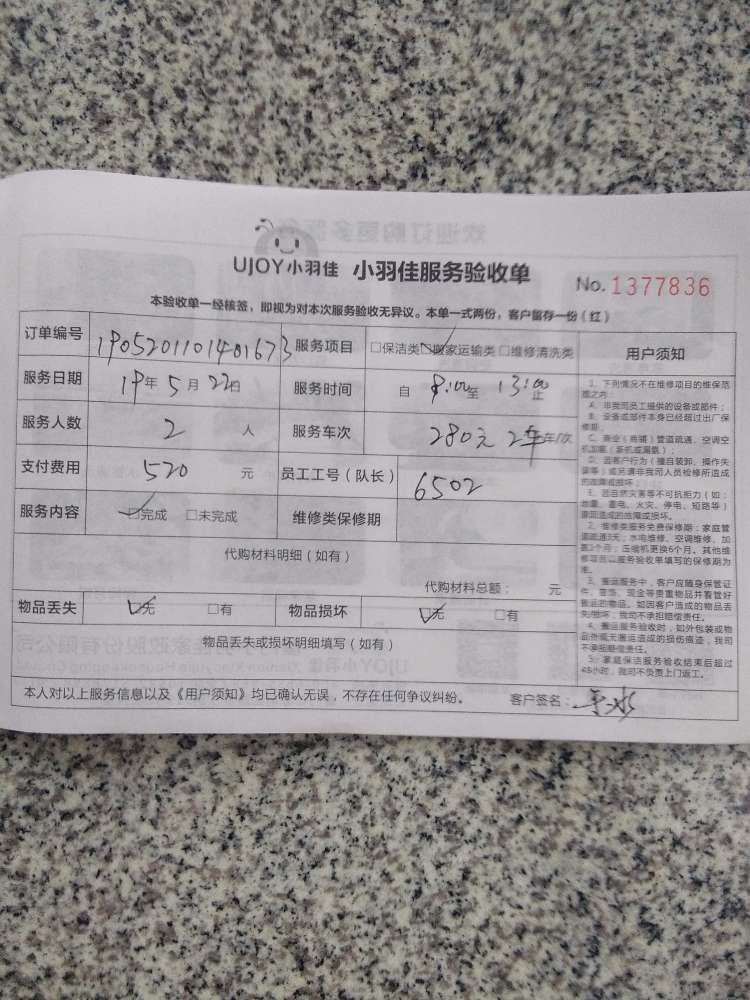 UJOY小羽佳 小羽佳服务验收单 No. 1377836
本验收单一经核签，即视为对本次服务验收无异议。本单一式两份，客户留存一份（红）
订单编号 1905201101401673 服务项目 □保洁类 ☑搬家运输类 □维修清洗类
服务日期 19年 5月 22日 服务时间 自 8:00至 13:00止
服务人数 2 人 服务车次 280元 2车 车/次
支付费用 520 元 员工工号（队长） 6502
服务内容 ☑完成 □未完成 维修类保修期
代购材料明细（如有）
代购材料总额： 元
物品丢失 ☑无 □有 物品损坏 ☑无 □有
物品丢失或损坏明细填写（如有）
本人对以上服务信息以及《用户须知》均已确认无误，不存在任何争议纠纷。 客户签名：
用户须知
1、下列情况不在维修项目的维保范
围之内：
A、非我司员工提供的设备或部件；
B、设备或部件本身已经超过出厂保
修期；
C、商业（商铺）管道疏通、空调空
机加氟（新机或漏氟）；
D、因客户行为（擅自装卸、操作失
误等）或另请非我司人员检修所造成
的故障或损坏；
E、因自然灾害等不可抗拒力（如：
地震、雷电、火灾、停电、短路等）
原因造成的故障或损坏。
2、维修类服务免费保修期：家庭管
道疏通3天；水电维修、空调维修、加
氟3个月；压缩机更换6个月，其他维
修项目以服务验收单填写的保修期为
准。
3、搬运服务中，客户应随身保管证
件、首饰、现金等贵重物品并看管好
售后的物品。如因客户造成的物品丢
失/损坏，我司不承担赔偿责任。
4、搬运服务验收时，如外包装或物
品外观无搬运造成的损伤痕迹，我司
不承担赔偿责任。
5、家庭保洁服务验收结束后超过
48小时，我司不负责上门返工。